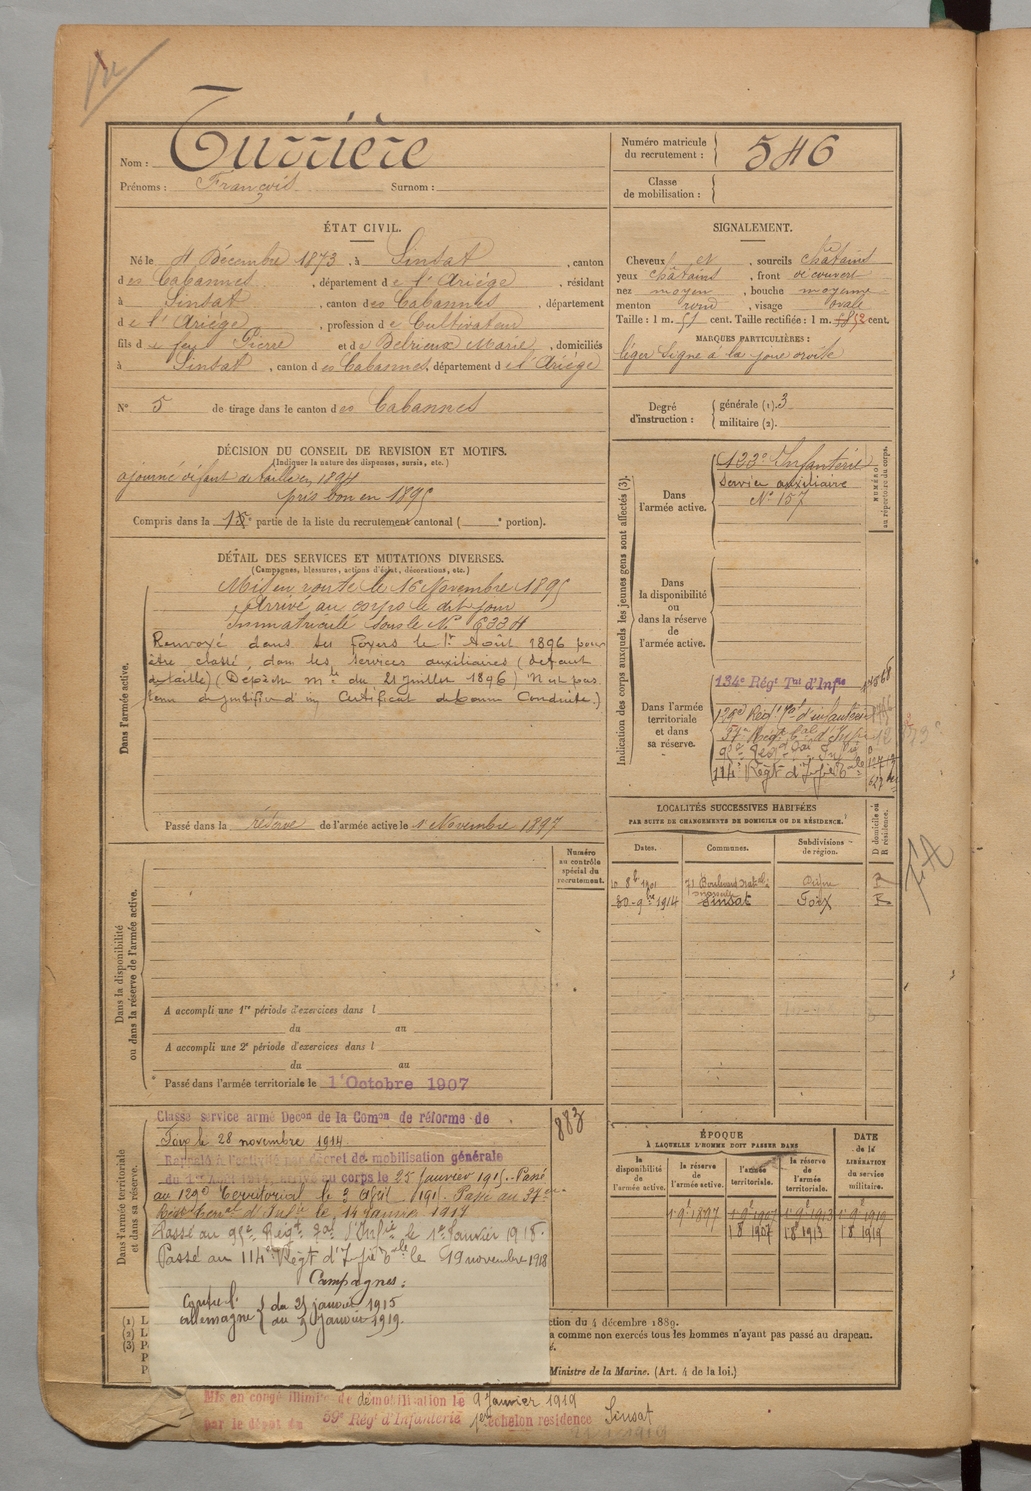 Nom : Turrière
Prénoms : François Surnom :
Numéro matricule du recrutement : 546
Classe de mobilisation :
ÉTAT CIVIL.
Né le 4 Décembre 1873, à Sinsat, canton
des Cabannes, département de l'Ariège, résidant
à Sinsat, canton des Cabannes, département
de l'Ariège, profession de Cultivateur
fils de feu Pierre et de Delrieux Marie, domiciliés
à Sinsat, canton des Cabannes, département de l'Ariège
N° 5 de tirage dans le canton des Cabannes
SIGNALEMENT.
Cheveux , sourcils châtains
yeux châtains, front découvert
nez moyen, bouche moyenne
menton rond, visage ovale
Taille : 1 m. 51 cent. Taille rectifiée : 1 m. 52 cent.
MARQUES PARTICULIÈRES :
léger signe à la joue droite
Degré d'instruction : générale (1). 3
militaire (2).
DÉCISION DU CONSEIL DE REVISION ET MOTIFS.
(Indiquer la nature des dispenses, sursis, etc.)
ajourné défaut de taille en 1894
pris bon en 1895
Compris dans la partie de la liste du recrutement cantonal ( ° portion).
DÉTAIL DES SERVICES ET MUTATIONS DIVERSES.
(Campagnes, blessures, actions d'éclat, décorations, etc.)
Dans l'armée active.
Mis en route le 16 Novembre 1895
Arrivé au corps le dit jour
Immatriculé sous le N° 6334
Renvoyé dans ses foyers le 1er Août 1896 pour
être classé, dans les services auxiliaires (défaut
de taille) (Dépêche mlle du 21 juillet 1896) N'est pas
tenu de justifier d'un Certificat de bonne Conduite.)
Passé dans la réserve de l'armée active le 1 Novembre 1897
Indication des corps auxquels les jeunes gens sont affectés (3).
NUMÉRO au répertoire du corps.
Dans l'armée active.
123e Infanterie
Service auxiliaire
N° 157
Dans la disponibilité ou dans la réserve de l'armée active.
Dans l'armée territoriale et dans sa réserve.
134e Régt Tal d'Infie
129e Regt Tal d'infanterie
37e Régt Tal d'Infie
95e Régt Tal Infie
114e Regt d'Infie Tale
LOCALITÉS SUCCESSIVES HABITÉES
PAR SUITE DE CHANGEMENTS DE DOMICILE OU DE RÉSIDENCE.
Dates. Communes. Subdivisions de région. D domicile ou R résidence.
71 Boulevard R
30-9bre 1914 Sinsat Foix R
Dans la disponibilité ou dans la réserve de l'armée active.
Numéro au contrôle spécial du recrutement.
A accompli une 1re période d'exercices dans l
du au
A accompli une 2e période d'exercices dans l
du au
Passé dans l'armée territoriale le 1er Octobre 1907
Dans l'armée territoriale et dans sa réserve.
883
Classé service armé Decon de la Comon de réforme de
Foix le 28 novembre 1914.
Rappelé à l'activité par décret de mobilisation générale
du 1er Août 1914, arrivé au corps le 25 janvier 1915. Passé
au 129e Territorial le 3 Avril 1915. Passé au 37e
Régt Territ d'Infie le 14 Janvier 1917
Passé au 95e Régt Tal d'Infie le 1er Janvier 1918.
Passé au 114e Régt d'Infie Tale le 19 novembre 1918
Campagnes :
Contre l'Allemagne du 25 janvier 1915
au Janvier 1919.
ÉPOQUE
À LAQUELLE L'HOMME DOIT PASSER DANS
la disponibilité de l'armée active. la réserve de l'armée active. l'armée territoriale. la réserve de l'armée territoriale.
DATE de la LIBÉRATION du service militaire.
1 9 1897 1 9 1907 1 9 1913 1 9 1919
1 8 1907 1 8 1913 1 8 1919
(1) L
(2) L
(3) P
ction du 4 décembre 1889.
a comme non exercés tous les hommes n'ayant pas passé au drapeau.
Ministre de la Marine. (Art. 4 de la loi.)
Mis en congé illimité de démobilisation le 9 Janvier 1919
par le dépôt du 59e Régt d'Infanterie 1er échelon residence Sinsat